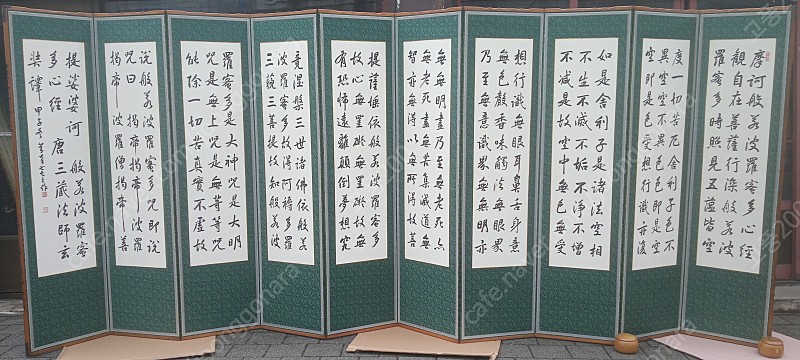 摩訶般若波羅蜜多心經
觀自在菩薩行深般若波
羅蜜多時照見五蘊皆空
度一切苦厄舍利子色不
異空空不異色色即是空
空即是色受想行識亦復
如是舍利子是諸法空相
不生不滅不垢不淨不增
不減是故空中無色無受
想行識無眼耳鼻舌身意
無色聲香味觸法無眼界
乃至無意識界無無明亦
無無明盡乃至無老死亦
無老死盡無苦集滅道無
智亦無得以無所得故菩
提薩埵依般若波羅蜜多
故心無罣礙無罣礙故無
有恐怖遠離顛倒夢想究
竟涅槃三世諸佛依般若
波羅蜜多故得阿耨多羅
三藐三菩提故知般若波
羅蜜多是大神咒是大明
咒是無上咒是無等等咒
能除一切苦真實不虛故
說般若波羅蜜多咒即說
咒曰 揭帝揭帝 波羅
揭帝 波羅僧揭帝 菩
提娑婆訶 般若波羅蜜
多心經 唐三藏法師玄
奘譯 甲子冬
cafe.naver